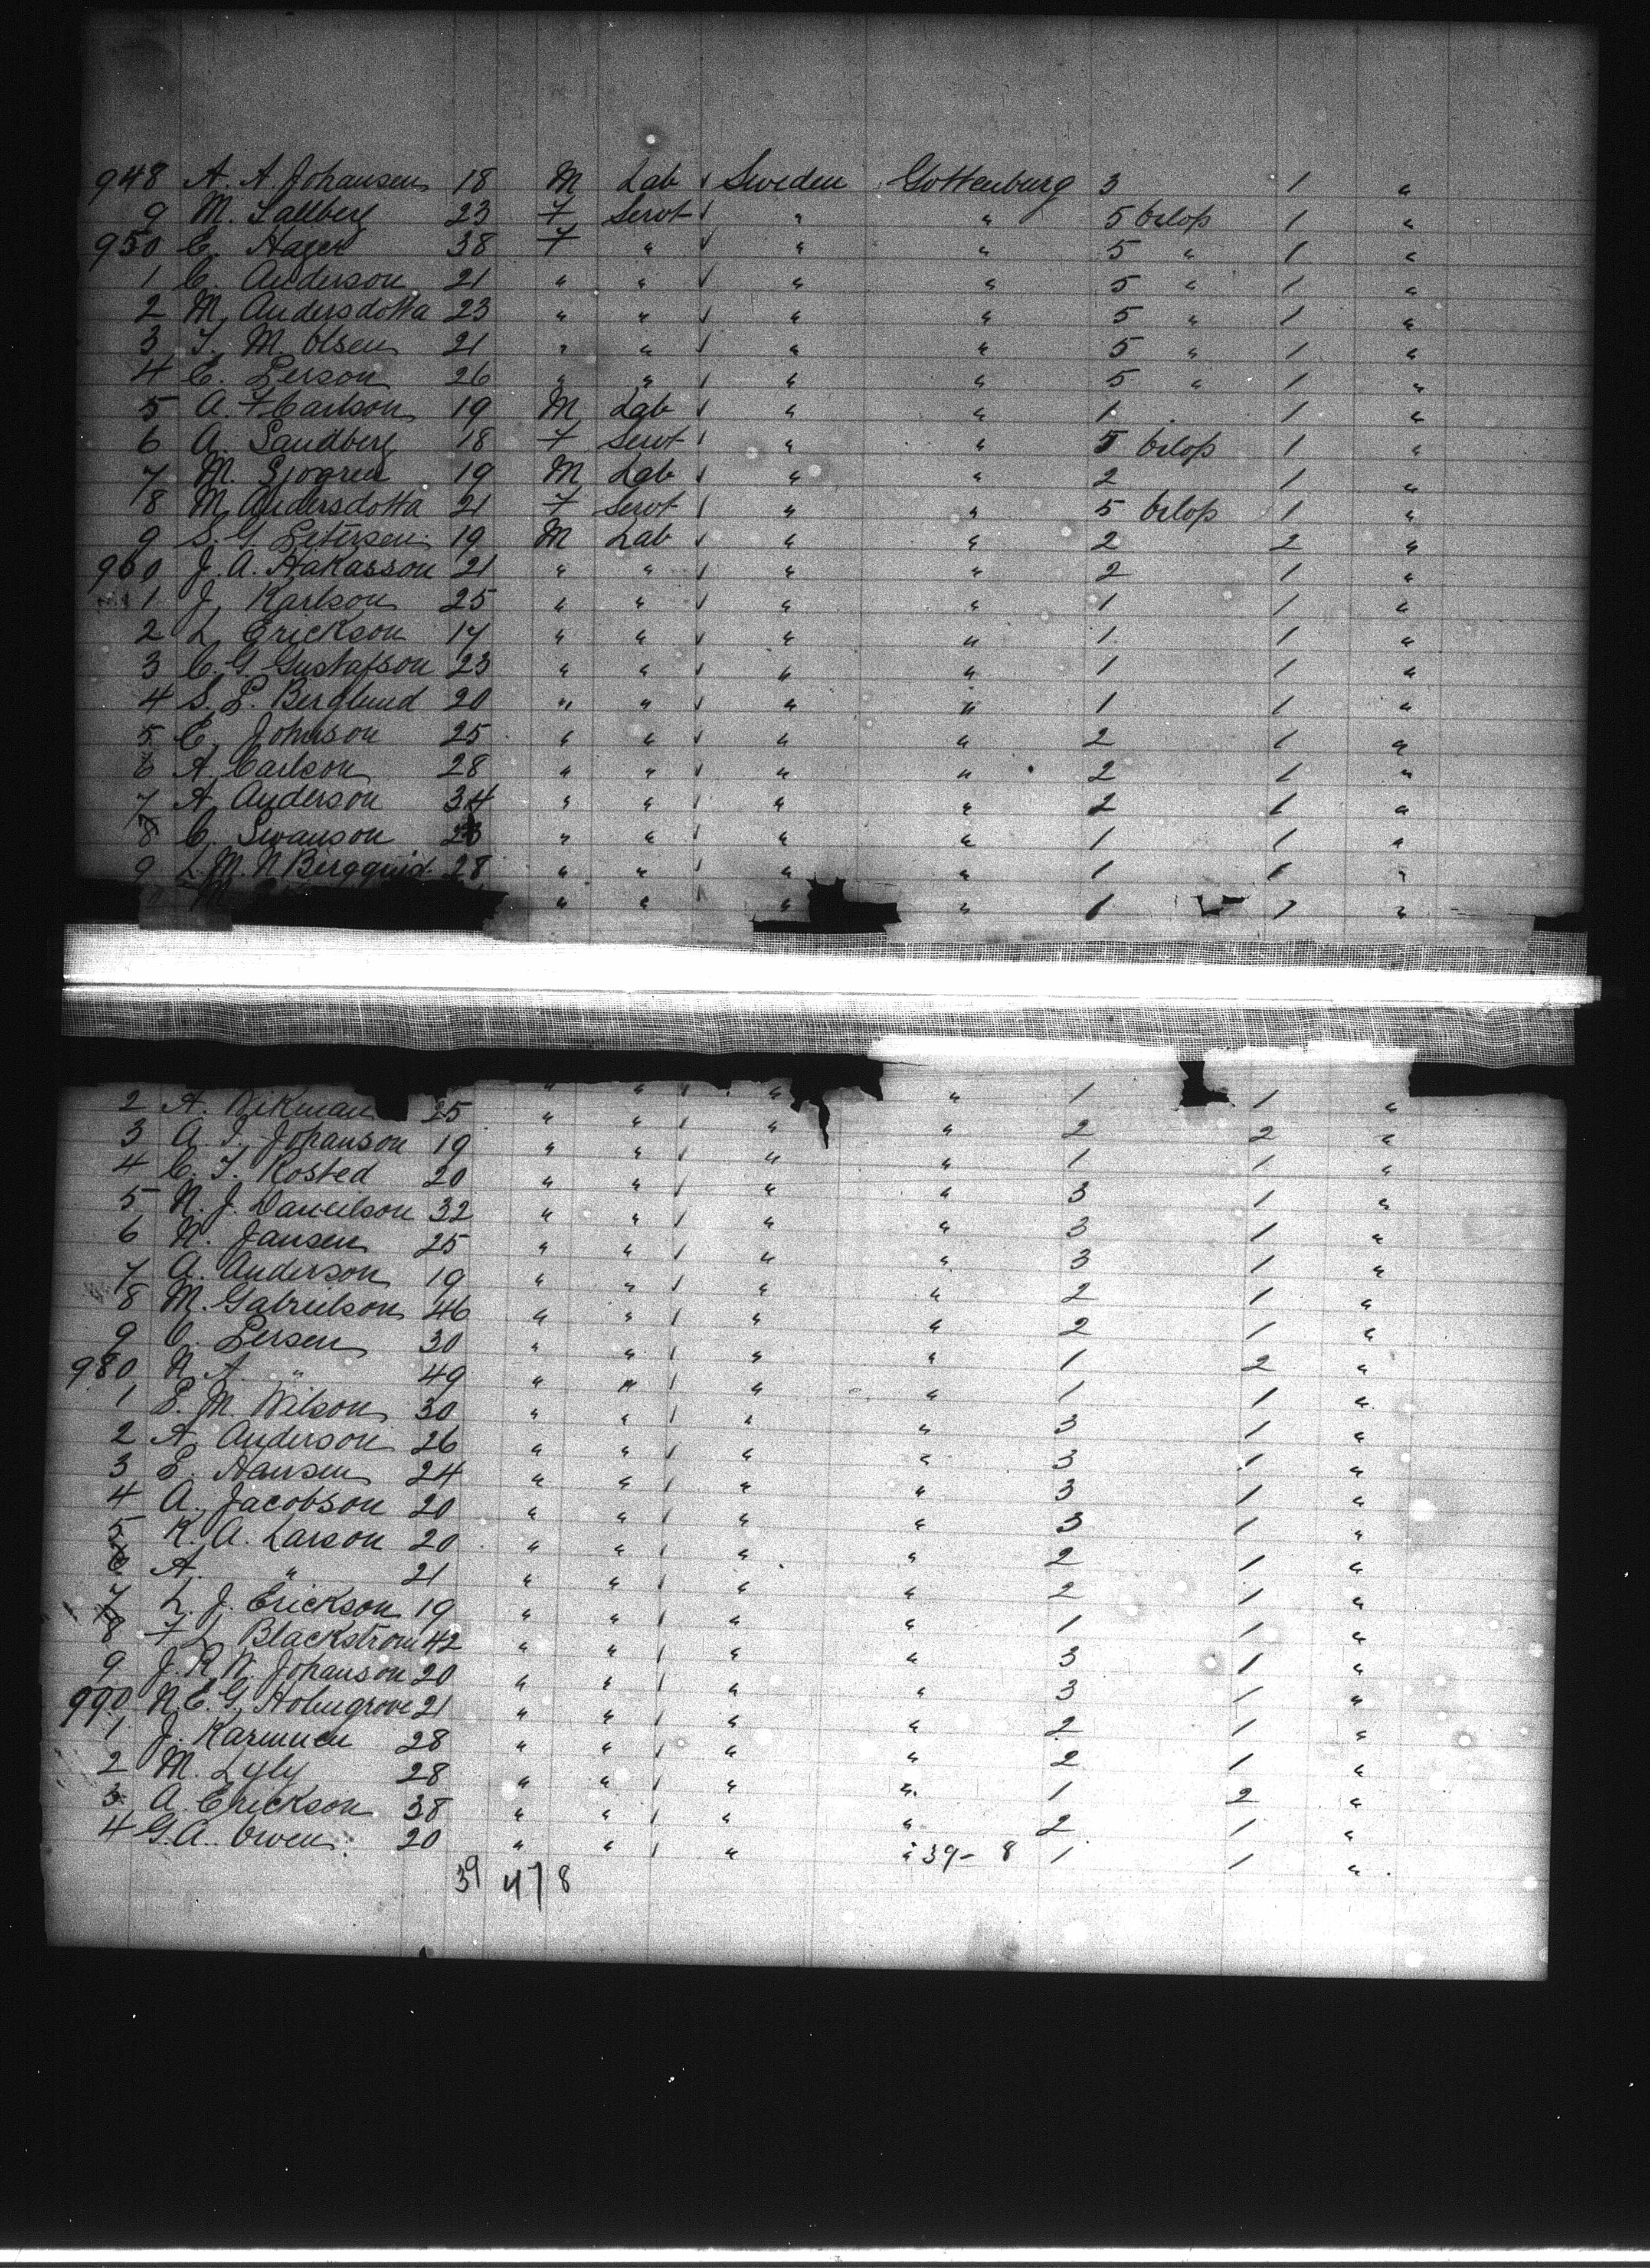 948 A. A. Johansen 18 M Lab ✓ Sweden Gottenburg 3 1 "
9 M. Sallberg 23 F Servt ✓ " " 5 Orlop 1 "
950 C. Hager 38 F " ✓ " " 5 " 1 "
1 C. Anderson 21 " " ✓ " " 5 " 1 "
2 M. Andersdotta 23 " " ✓ " " 5 " 1 "
3 T. M. Olsen 21 " " ✓ " " 5 " 1 "
4 C. Person 26 " " ✓ " " 5 " 1 "
5 A. F. Carlson 19 M Lab ✓ " " 1 1 "
6 A. Sandberg 18 F Servt ✓ " " 5 Orlop 1 "
7 M. Sjogren 19 M Lab ✓ " " 2 1 "
8 M. Andersdotta 21 F Servt ✓ " " 5 Orlop 1 "
9 S. G. Petersen 19 M Lab ✓ " " 2 2 "
960 J. A. Hakasson 21 " " ✓ " " 2 1 "
1 J. Karlson 25 " " ✓ " " 1 1 "
2 L. Erickson 17 " " ✓ " " 1 1 "
3 C. G. Gustafson 23 " " ✓ " " 1 1 "
4 S. P. Berglund 20 " " ✓ " " 1 1 "
5 C. Johnson 25 " " ✓ " " 2 1 "
6 A. Carlson 28 " " ✓ " " 2 1 "
7 A. Anderson 34 " " ✓ " " 2 1 "
8 C. Swanson " " ✓ " " 1 1 "
9 L. M. N. Bergquid 28 " " ✓ " " 1 1 "
M. " " " " 1 1 "
" " ✓ " " 1 1 "
2 A. Wikman 25 " " ✓ " " 2 2 "
3 A. I. Johanson 19 " " ✓ " " 1 1 "
4 C. T. Kosted 20 " " ✓ " " 3 1 "
5 N. J. Danielson 32 " " ✓ " " 3 1 "
6 N. Jansen 25 " " ✓ " " 3 1 "
7 A. Anderson 19 " " ✓ " " 2 1 "
8 M. Gabrielson 46 " " ✓ " " 2 1 "
9 O. Persen 30 " " ✓ " " 1 2 "
980 N. A. " 49 " " ✓ " " 1 1 "
1 P. M. Wilson 30 " " ✓ " " 3 1 "
2 A. Anderson 26 " " ✓ " " 3 1 "
3 P. Hansen 24 " " ✓ " " 3 1 "
4 A. Jacobson 20 " " ✓ " " 3 1 "
5 K. A. Larson 20 " " ✓ " " 2 1 "
6 A. " 21 " " ✓ " " 2 1 "
7 L. J. Erickson 19 " " ✓ " " 1 1 "
8 F. L. Blackstrom 42 " " ✓ " " 3 1 "
9 J. R. N. Johanson 20 " " ✓ " " 3 1 "
990 N. E. G. Holmgrove 21 " " ✓ " " 2 1 "
1 J. 28 " " ✓ " " 2 1 "
2 M. Lyly 28 " " ✓ " " 1 2 "
3 A. Erickson 38 " " ✓ " " 2 1 "
4 G. A. Owen 20 " " ✓ " " 39 - 8 1 1 "
39 47 8